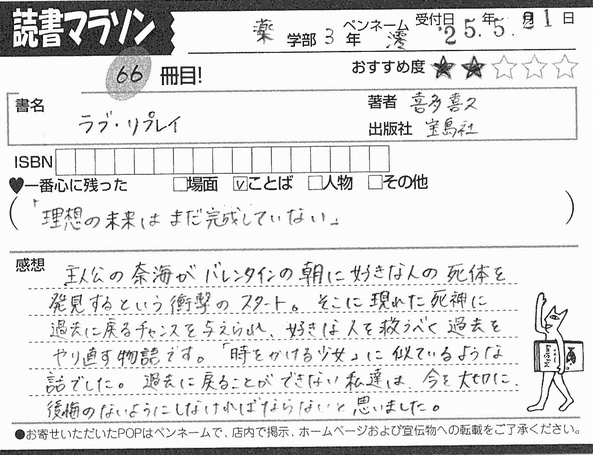 読書マラソン 薬 学部 3 年 ペンネーム 澪 受付日 '25年5.月21日
66 冊目! おすすめ度 ★★☆☆☆
書名 ラブ・リプレイ
著者 喜多喜久
出版社 宝島社
ISBN
♥一番心に残った □場面 ☑ことば □人物 □その他
(「理想の未来はまだ完成していない」)
感想 主人公の奈海がバレンタインの朝に好きな人の死体を
発見するという衝撃のスタート。そこに現れた死神に
過去に戻るチャンスを与えられ、好きな人を救うべく過去を
やり直す物語です。「時をかける少女」に似ているような
話でした。過去に戻ることができない私達は、今を大切に、
後悔のないようにしなければならないと思いました。
●お寄せいただいたPOPはペンネームで、店内で掲示、ホームページおよび宣伝物への転載をご了承ください。